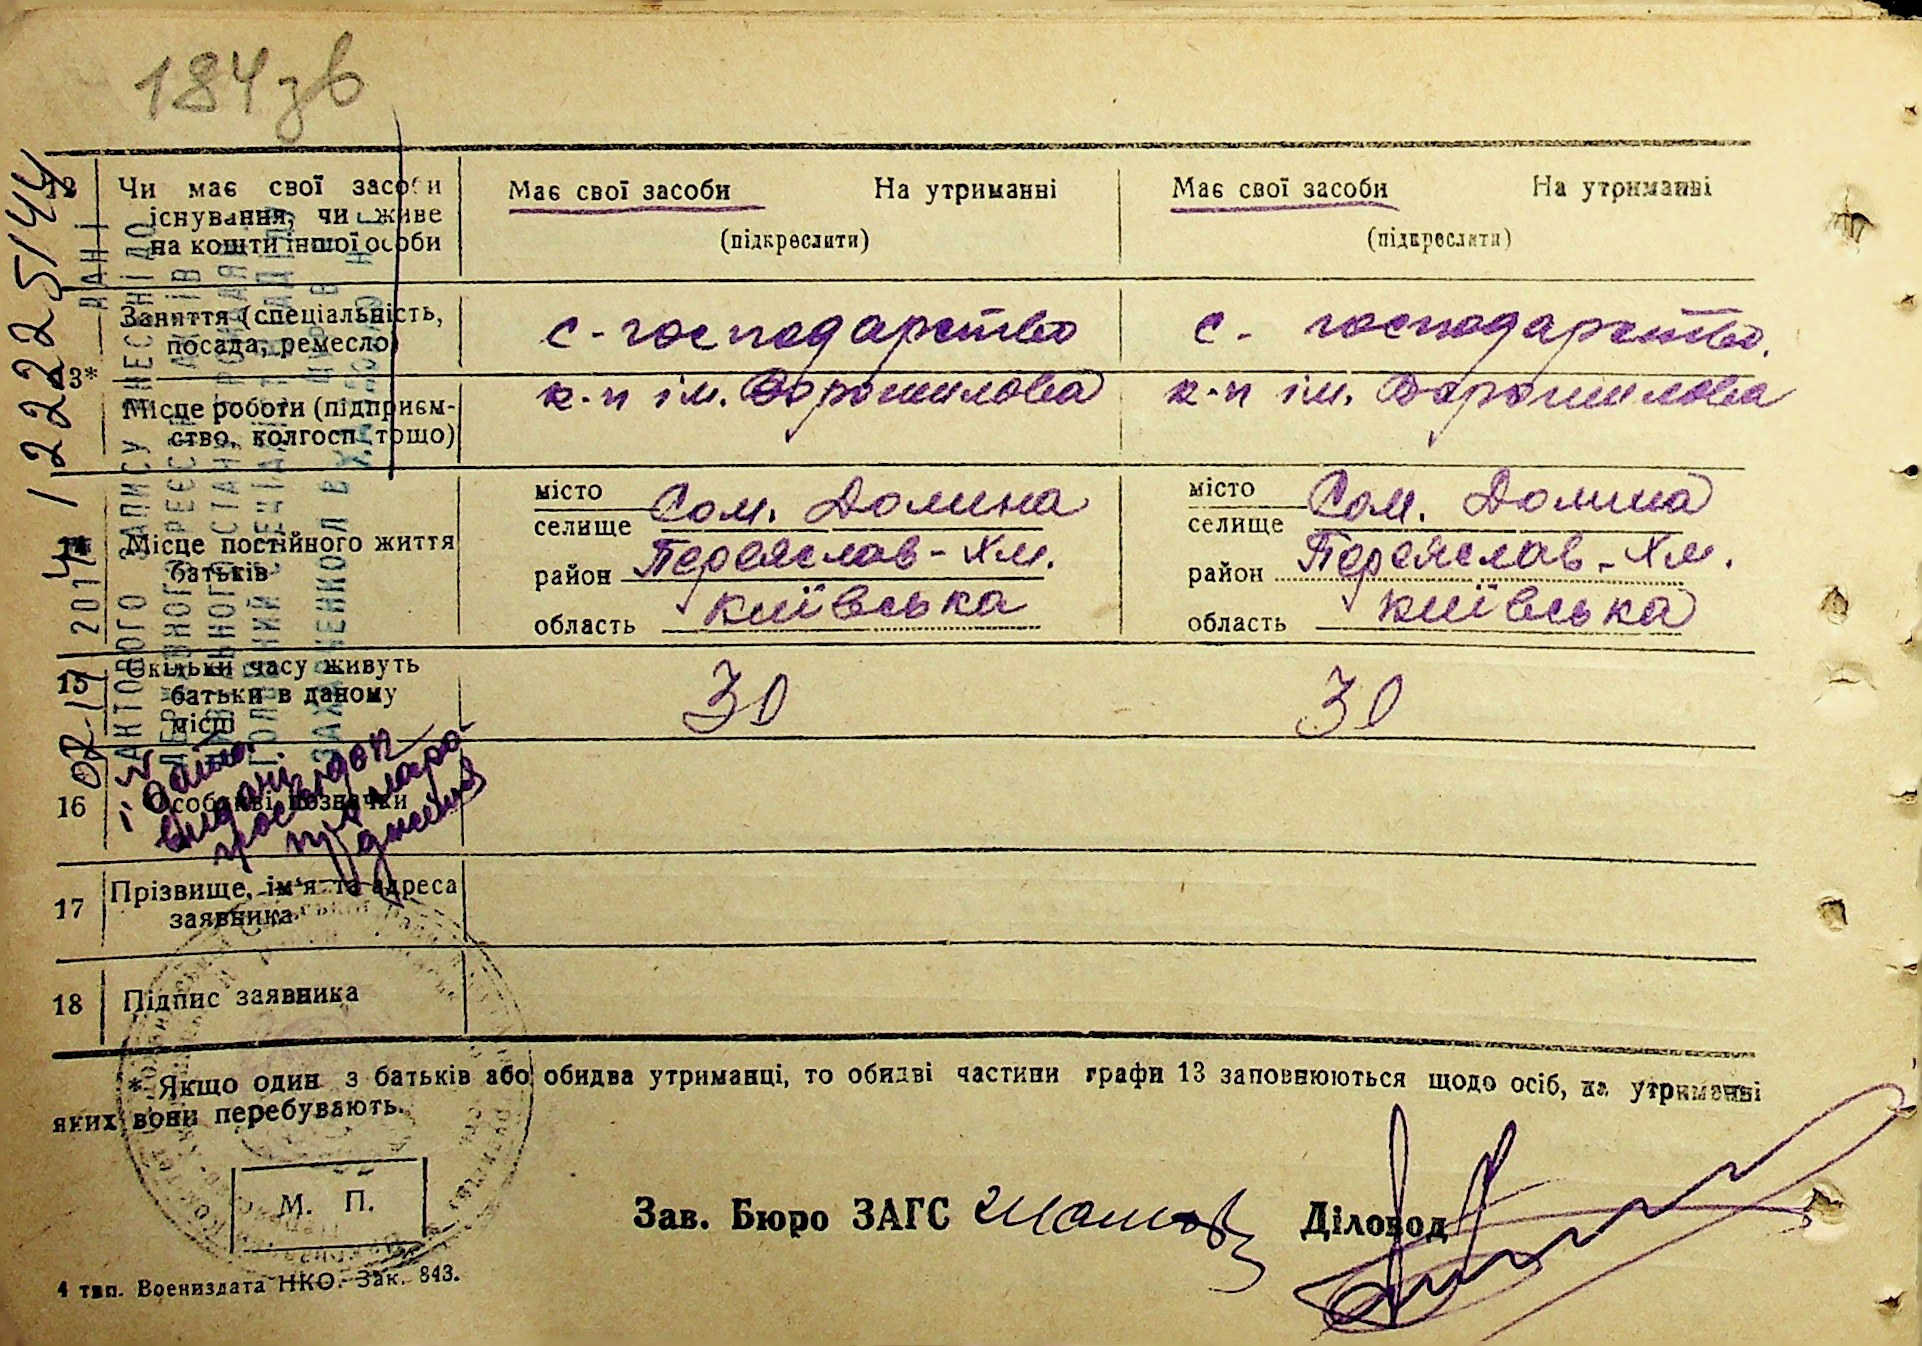 184зв
12 Чи має свої засоби існування, чи живе на кошти іншої особи
Має свої засоби На утриманні
(підкреслити)
Має свої засоби На утриманні
(підкреслити)
13*
Заняття (спеціальність, посада, ремесло)
с-господарство
с. господарство.
Місце роботи (підприєм-
ство, колгосп тощо)
к-п ім. Ворошилова
к-п ім. Ворошилова
14 Місце постійного життя батьків
місто
селище Сом. Долина
район Переяслав-Хм.
область Київська
місто
селище Сом. Долина
район Переяслав-Хм.
область Київська
15 Скільки часу живуть батьки в даному місці
30
30
16 Особливі позначки
17 Прізвище, ім'я та адреса заявника
18 Підпис заявника
* Якщо один з батьків або обидва утриманці, то обидві частини графи 13 заповнюються щодо осіб, на утриманні
яких вони перебувають.
М. П.
Зав. Бюро ЗАГС
Діловод
4 тип. Воениздата НКО. Зак. 843.
ДАНІ
АКТОВОГО ЗАПИСУ ВНЕСЕНІ ДО
і дата
видані